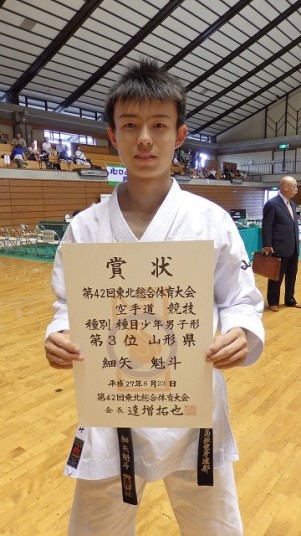 賞状
第42回東北総合体育大会
空手道 競技
種別 種目少年男子形
第3位 山形県
細矢 魁斗
平成27年8月23日
第42回東北総合体育大会
会長 達増拓也
細矢魁斗